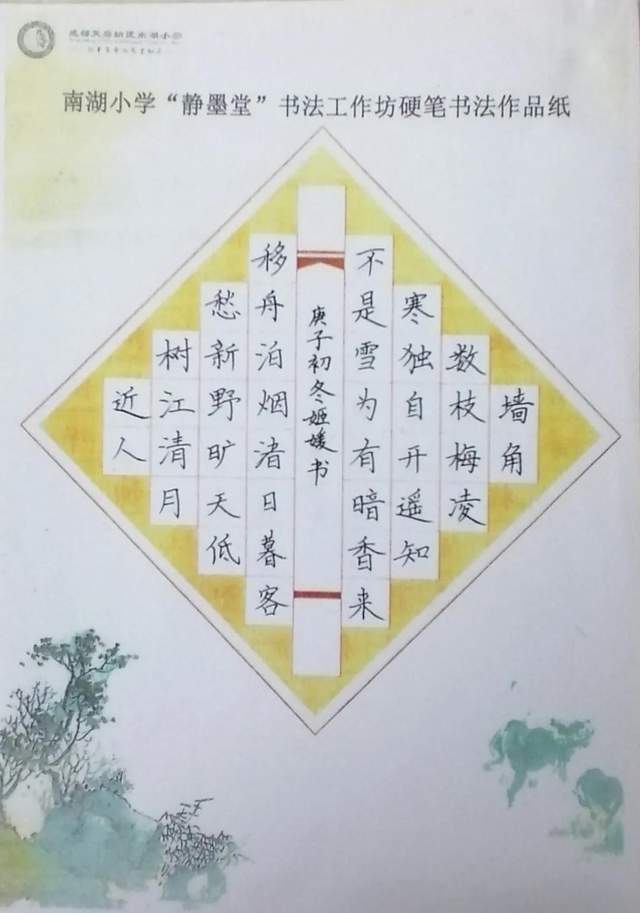 成都天府新区南湖小学
南湖小学“静墨堂”书法工作坊硬笔书法作品纸
墙角
数枝梅凌
寒独自开遥知
不是雪为有暗香来
庚子初冬姬媛书
移舟泊烟渚日暮客
愁新野旷天低
树江清月
近人